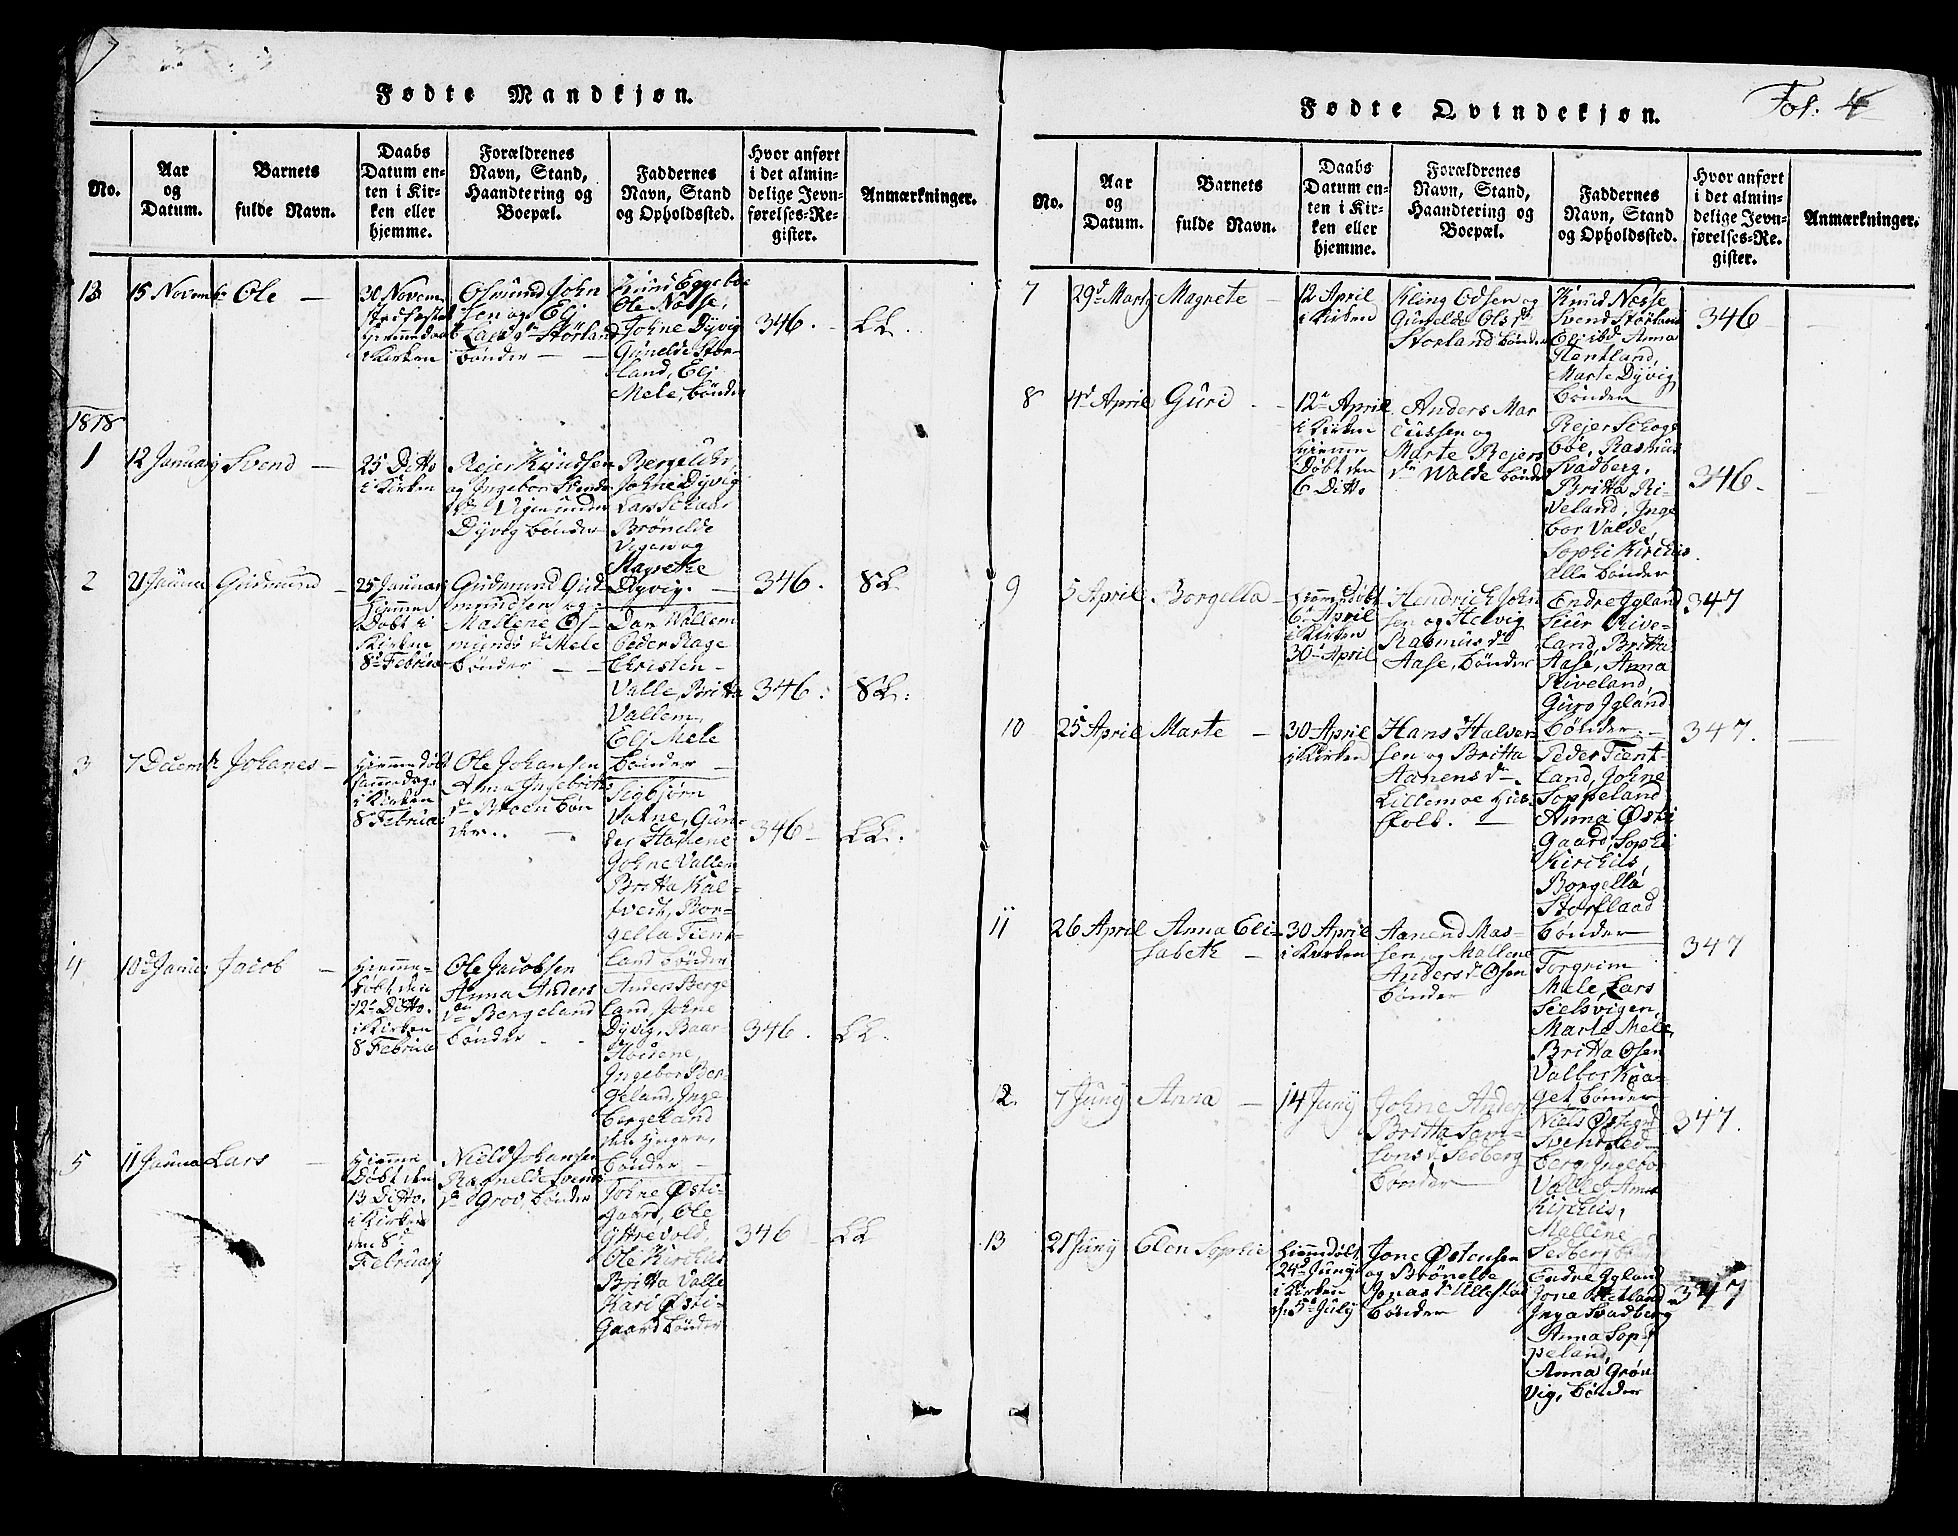 Fødte Mandkjøn.
No.
Aar
og
Datum.
Barnets
fulde Navn.
Daabs
Datum en-
ten i Kir-
ken eller
hjemme.
Forældrenes
Navn, Stand,
Haandtering og
Boepæl.
Faddernes
Navn, Stand
og Opholdssted.
Hvor anført
i det almin-
delige Jevn-
førelses-Re-
gister.
Anmærkninger.
13
15 Novemb
Ole
30 Novem
i Kirken
Osmund John
sen og Eli
Lars dr Störland
bönder
Eggeboe
Ole Nosse,
Johne Dyvig
Gunelde Stor-
land, Eli
Mele, bönder
346.
1818
1
12 January
Svend
25 Ditto
i Kirken
Rejer Knudsen
og Ingebor Svends
Dyvig bönder
Johne Dyvig
Brönelde
Magrethe
Dyvig.
346.
2
21 Janua
Gudmund
25 Januar
hiemme
Döbt i
Kirken
8d Februar
Gudmund Gud-
mundsen og
Mallene Os-
munds dr Mele
bönder
Dan Wallem
Peder Rage
Christen
Valle, Britta
Vallem,
Eli Mele
bönder
346.
3
7 Decemb
Johanes
hiemmedöbt
samedag
i Kirken
8 Februar
Ole Johansen
Anna Ingebrits
dr Broen bön
der.
Sigbjörn
Vatne, Gun-
der Hollene
Johne Vallem
Britta Kal-
tvedt, Bor-
gella Tient-
land bönder
346
4
10d Januar
Jacob
hiemme-
döbt den
12d Ditto.
i Kirken
8 Februar
Ole Jacobsen
Anna Anders
dr Bergeland
bönder
Anders Berge
land, Johne
Dyvig, Baar
Hollene,
Ingebor Ber-
geland, Inge
Bergeland
den yngre,
bönder
346.
5
11 Janua
Lars
hiemme
Döbt den
13 Ditto.
i Kirken
den 8d
February
Niels Johansen
Ragnelde Svends
dr Grov, bönder
Johne Østi-
gaard, Ole
Yttrevold,
Ole Kirchus
Britta Valle
Kari Østi-
Gaard bönder
346
Fødte Qvindekjøn.
Fol. 4
No.
Aar
og
Datum.
Barnets
fulde Navn.
Daabs
Datum en-
ten i Kir-
ken eller
hjemme.
Forældrenes
Navn, Stand,
Haandtering og
Boepæl.
Faddernes
Navn, Stand
og Opholdssted.
Hvor anført
i det almin-
delige Jevn-
førelses-Re-
gister.
Anmærkninger.
7
29d Marty
Magrete
12 April
i Kirken
Kling Edsen og
Gunelde Ols dr
Storland bönder
Knud Nesse
Svend Storland
Eli ibd Anna
Hentland,
Marte Dyvig
bönder
346
8
4d April
Guro
12d April
i Kirken
hiemme
Döbt den
6 Ditto
Anders Mar
cussen og
Marte Rejers
dr Walde bönder
Rejer Schoge
böe, Rasmus
Svadberg,
Britta Ri-
veland, Inge
bor Valde,
Sophi Kirchus
alle bönder
346.
9
5 April
Borgella
hiemmedöbt
6d April
i Kirken
30d April
Hendrich John
sen og Helvig
Rasmus dr
Aase, bönder
Endre Igland
Seier Rive-
land, Britta
Aase, Anna
Riveland,
Guro Igland
bönder
347
10
25 April
Marte
30 April
i Kirken
Hans Halvor
sen og Britta
Aanens dr
Lillemoe Huus
folk.
Peder Tient-
land, Johne
Soppeland
Anna Østi
Gaard, Sophi
Kirchus,
Borgella
Storfland
bönder
347.
11
26 April
Anna Eli-
sabeth
30 April
i Kirken
Aanend Mas-
sen og Mallene
Anders dr Osen
bönder
Torgrim
Mele, Lars
Sielsvigen,
Marte Mele
Britta Osen
Valbor Kaa-
get bönder
347
12.
7 Juny
Anna
14 Juny
Johne Anders
Britta Sam-
sons dr Sedberg
bönder
Niels Østigrd
Svend Sed-
berg, Ingebo
Valle, Anna
Kirchus,
Mallene
Sedberg bönder
347.
13
21 Juny
Elen Sophie
hiemmdöbt
24d Juny
i Kirken
den 5d July
Jone Østensen
og Brönelde
Jonas dr Ullestad
bönder
Endre Igland
Jone Hetland
Inga Svadberg
Anna Sop-
peland,
Anna Grön
vig, bönder
347